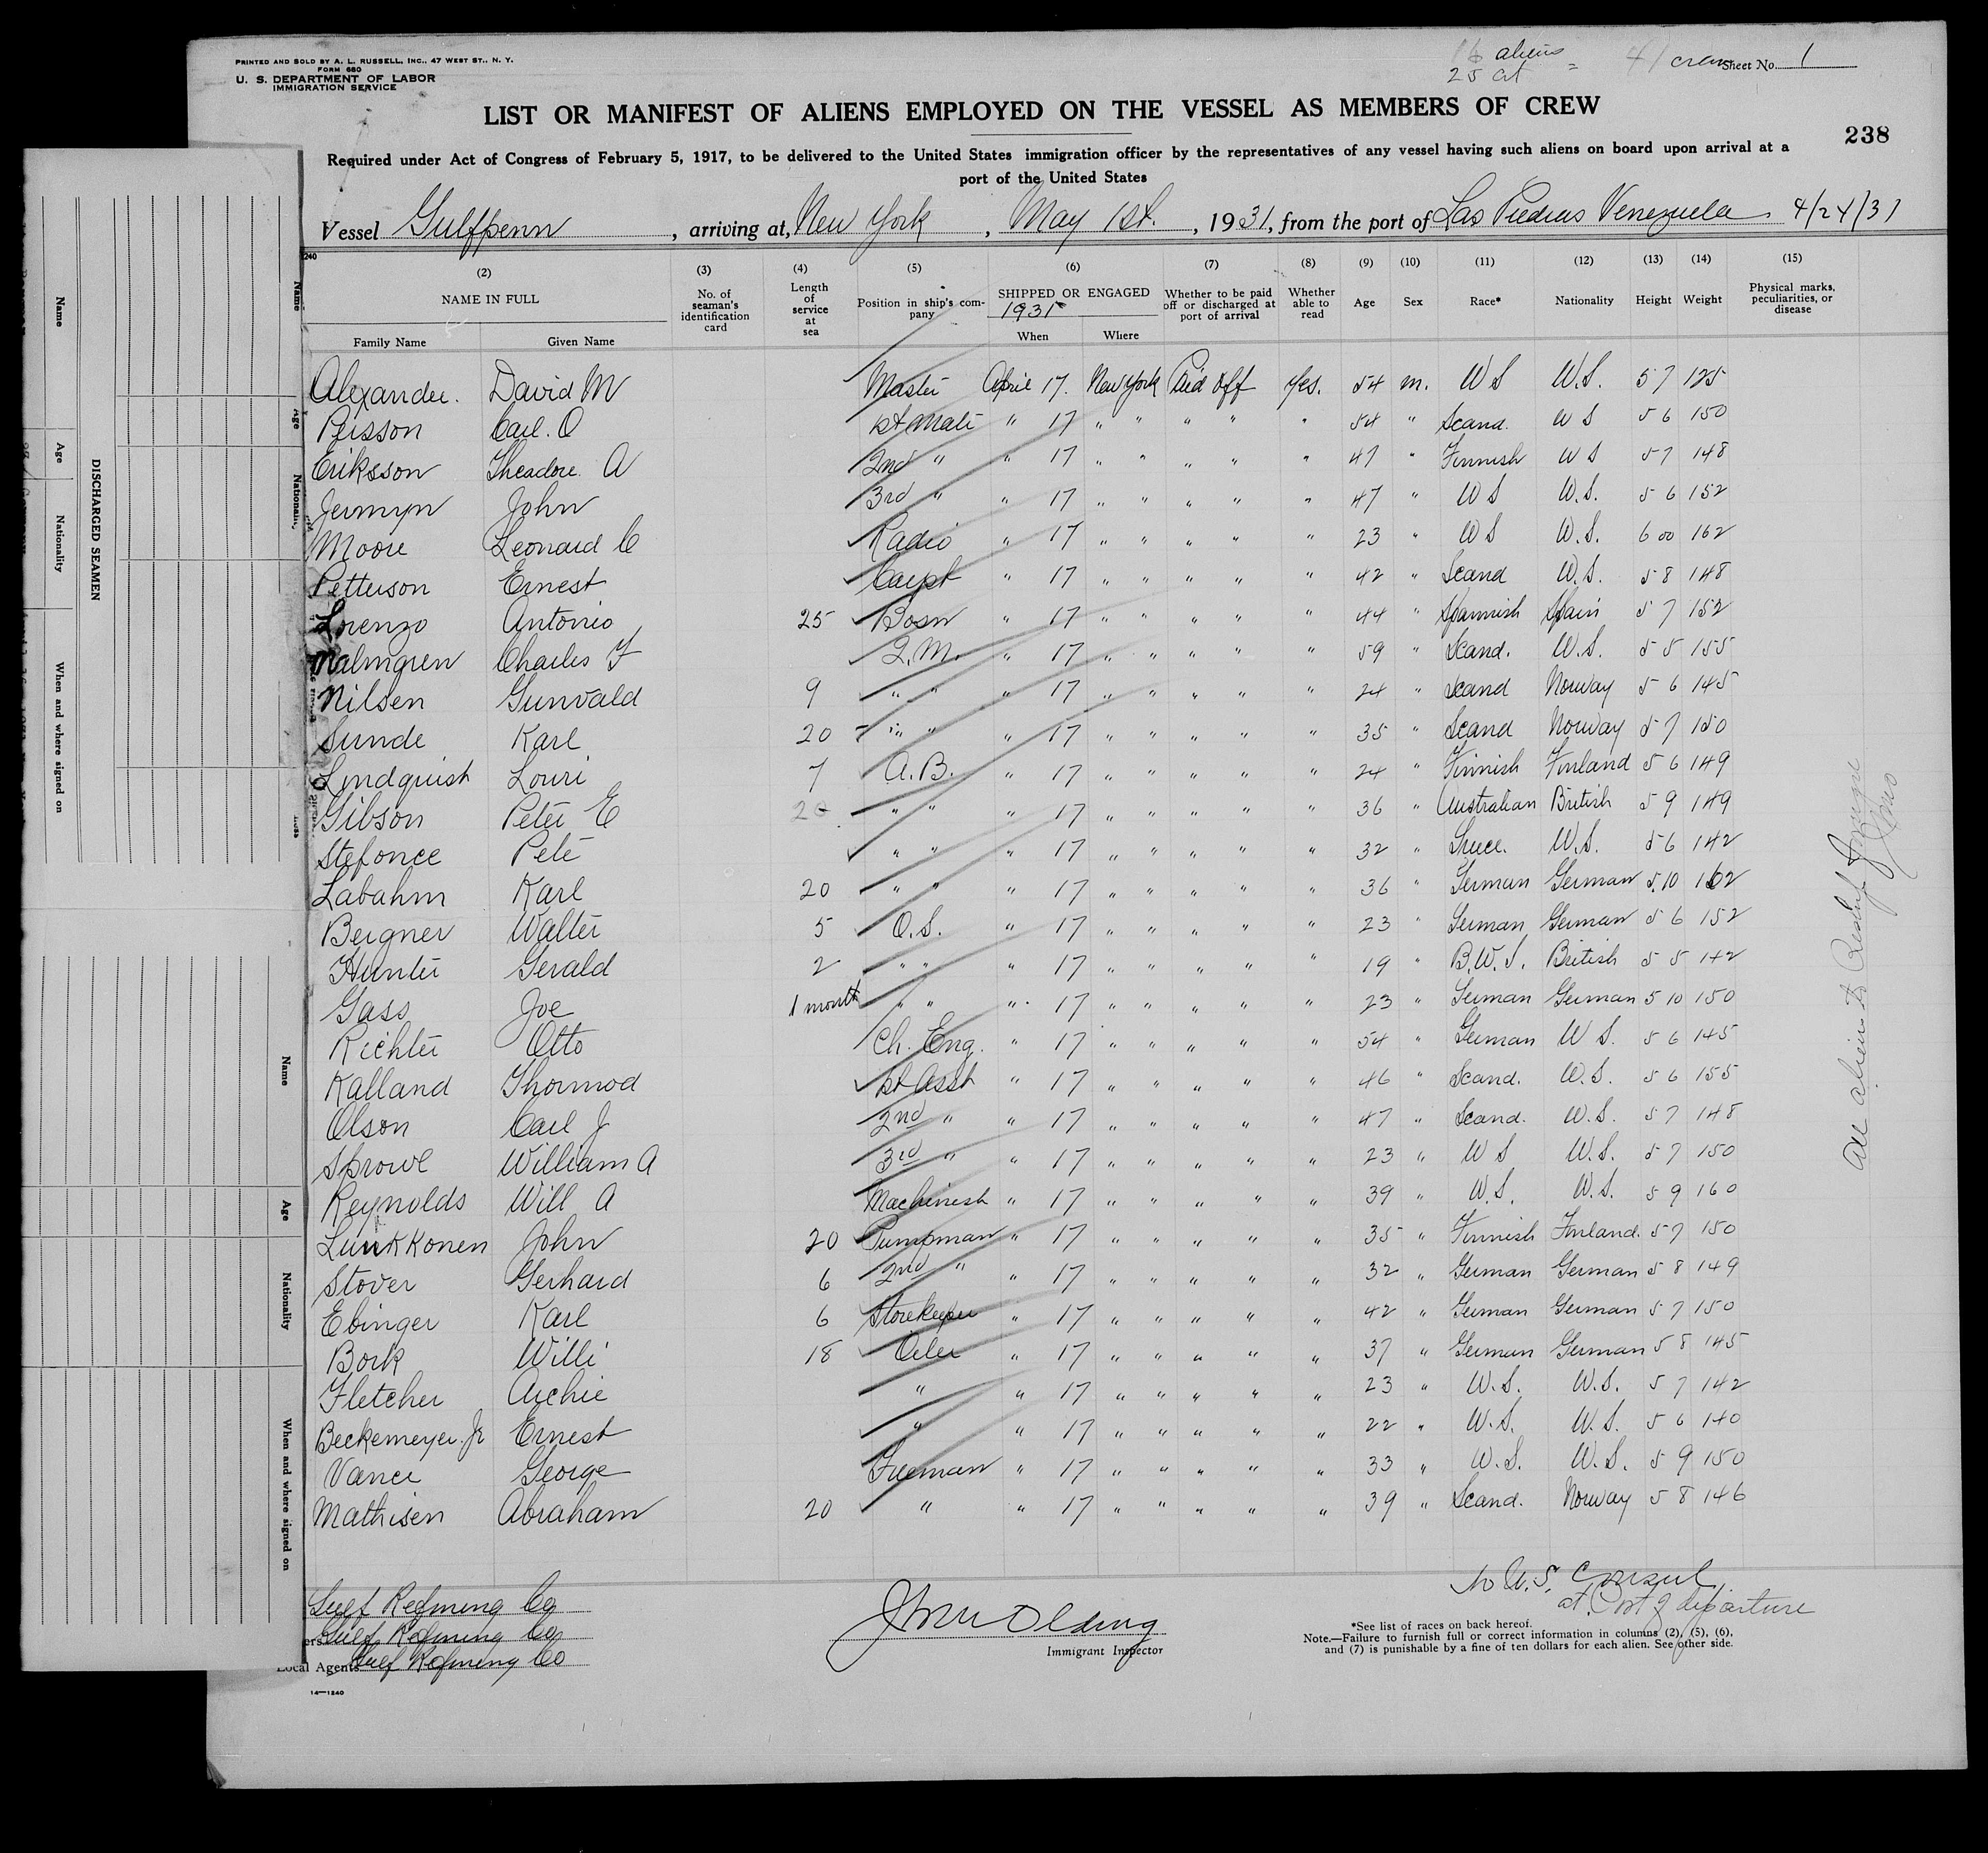 PRINTED AND SOLD BY A. L. RUSSELL, INC., 47 WEST ST., N. Y.
FORM 680
U. S. DEPARTMENT OF LABOR
IMMIGRATION SERVICE
16 aliens
25 cit = 41 crew
Sheet No. 1
LIST OR MANIFEST OF ALIENS EMPLOYED ON THE VESSEL AS MEMBERS OF CREW
238
Required under Act of Congress of February 5, 1917, to be delivered to the United States immigration officer by the representatives of any vessel having such aliens on board upon arrival at a
port of the United States
Vessel Gulfpenn, arriving at, New York, May 1st., 1931, from the port of Las Piedras Venezuela. 4/24/31
240
(2) (3) (4) (5) (6) (7) (8) (9) (10) (11) (12) (13) (14) (15)
NAME IN FULL
Family Name Given Name
No. of seaman's identification card
Length of service at sea
Position in ship's company
SHIPPED OR ENGAGED
1931
When Where
Whether to be paid off or discharged at port of arrival
Whether able to read
Age Sex Race* Nationality Height Weight
Physical marks, peculiarities, or disease
Alexander. David M Master April 17. New York Paid off Yes. 54 m. U S U.S. 5 7 125
Carl. O 1st Mate " 17 " " " " " 54 " Scand. U S 5 6 150
Eriksson Theadore. A 2nd " " 17 " " " " " 47 " Finnish U S 5 7 148
Jermyn John 3rd " " 17 " " " " " 47 " U S U.S. 5 6 152
Moore Leonard C Radio " 17 " " " " " 23 " U S U.S. 6 00 162
Petterson Ernest Carpt " 17 " " " " " 42 " Scand U.S. 5 8 148
Lorenzo Antonio 25 Bosn " 17 " " " " " 44 " Spannish Spain 5 7 152
Malmgren Charles F Q.M. " 17 " " " " " 59 " Scand. U.S. 5 5 155
Nilsen Gunvald 9 " " " 17 " " " " " 24 " Scand Norway 5 6 145
Sunde Karl 20 " " " 17 " " " " " 35 " Scand Norway 5 7 150
Lindquist Louri 7 A.B. " 17 " " " " " 24 " Finnish Finland 5 6 149
Gibson Peter E 20 " " " 17 " " " " " 36 " Australian British 5 9 149
Stefonce Pete " " " 17 " " " " " 32 " U.S. 5 6 142
Labahm Karl 20 " " " 17 " " " " " 36 " German German 5.10 162
Bergner Walter 5 O.S. " 17 " " " " " 23 " German German 5 6 152
Hunter Gerald 2 " " " 17 " " " " " 19 " B.W.I. British 5 5 142
Gass Joe 1 month " " " 17 " " " " " 23 " German German 5 10 150
Richter Otto Ch. Eng. " 17 " " " " " 54 " German U S. 5 6 145
Kalland Thormod 1st Asst " 17 " " " " " 46 " Scand. U.S. 5 6 155
Olson Carl J 2nd " " 17 " " " " " 47 " Scand. U.S. 5 7 148
Sprowl William A 3rd " " 17 " " " " " 23 " U S U.S. 5 7 150
Reynolds Will A Machinest " 17 " " " " " 39 " U.S. U.S. 5 9 160
Lunkkonen John 20 Pumpman " 17 " " " " " 35 " Finnish Finland. 5 7 150
Stover Gerhard 6 2nd " " 17 " " " " " 32 " German German 5 8 149
Ebinger Karl 6 Storekeeper " 17 " " " " " 42 " German German 5 7 150
Bork Willi 18 Oiler " 17 " " " " " 37 " German German 5 8 145
Fletcher Archie " " 17 " " " " " 23 " U.S. U.S. 5 7 142
Beckemeyer. Jr Ernest " " 17 " " " " " 22 " U.S. U.S. 5 6 140
Vance George Fireman " 17 " " " " " 33 " U.S. U.S. 5 9 150
Mathisen Abraham 20 " " 17 " " " " " 39 " Scand. Norway 5 8 146
Gulf Refining Co
ers Gulf Refining Co
Local Agents Gulf Refining Co
14—1240
Immigrant Inspector
No U.S. Consul
at Port of departure
*See list of races on back hereof.
Note.—Failure to furnish full or correct information in columns (2), (5), (6),
and (7) is punishable by a fine of ten dollars for each alien. See other side.
DISCHARGED SEAMEN
Name
Age
Nationality
When and where signed on
Name
Age
Nationality
Name
Age
Nationality
When and where signed on